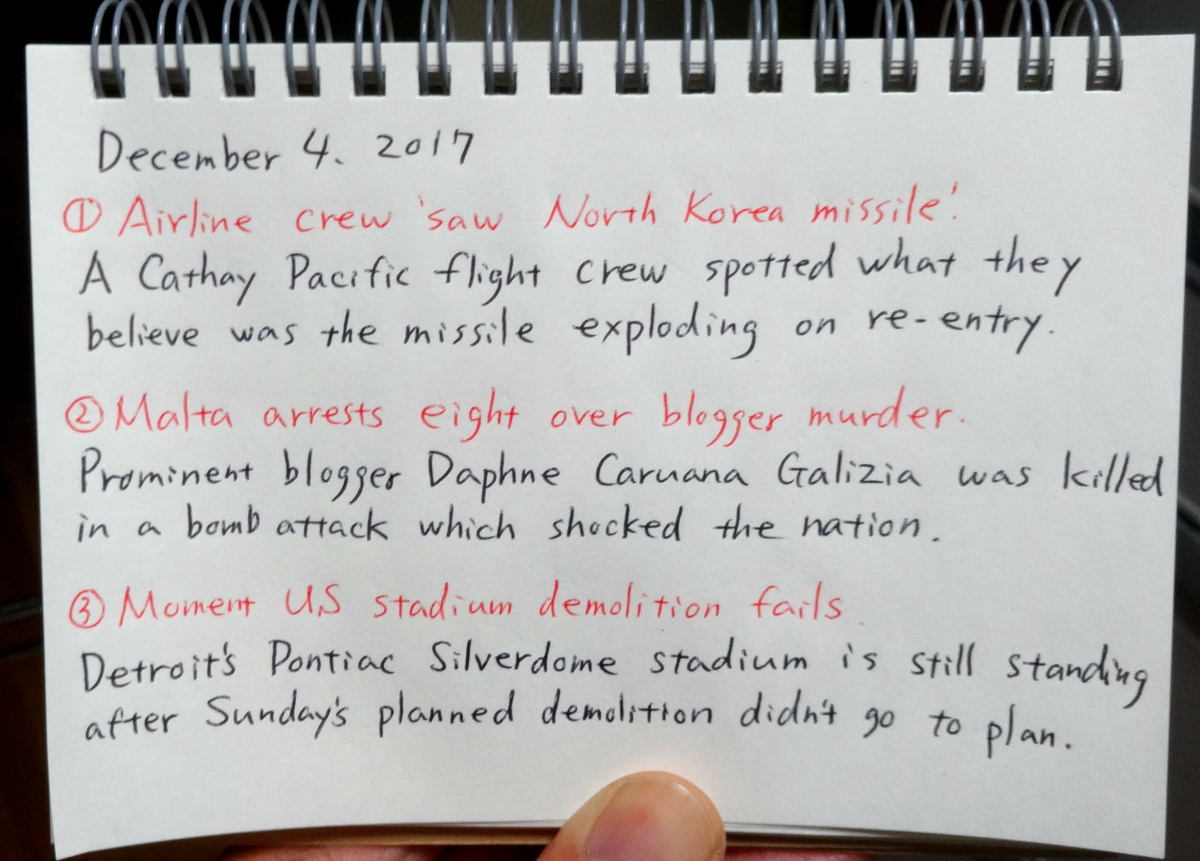 December 4. 2017
① Airline crew 'saw North Korea missile'.
A Cathay Pacific flight crew spotted what they
believe was the missile exploding on re-entry.
② Malta arrests eight over blogger murder.
Prominent blogger Daphne Caruana Galizia was killed
in a bomb attack which shocked the nation.
③ Moment US stadium demolition fails.
Detroit's Pontiac Silverdome stadium is still standing
after Sunday's planned demolition didn't go to plan.